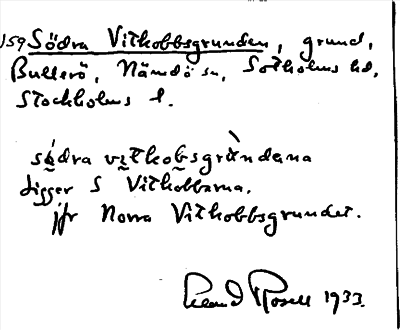 159 Södra Vitkobbsgrunden, grund,
Bullerö, Nämdö sn, Sotholms hd,
Stockholms l.
södra vitkobsgrundena
ligger S Vitkobbarna.
jfr Norra Vitkobbsgrundet.
Rosell 1933.